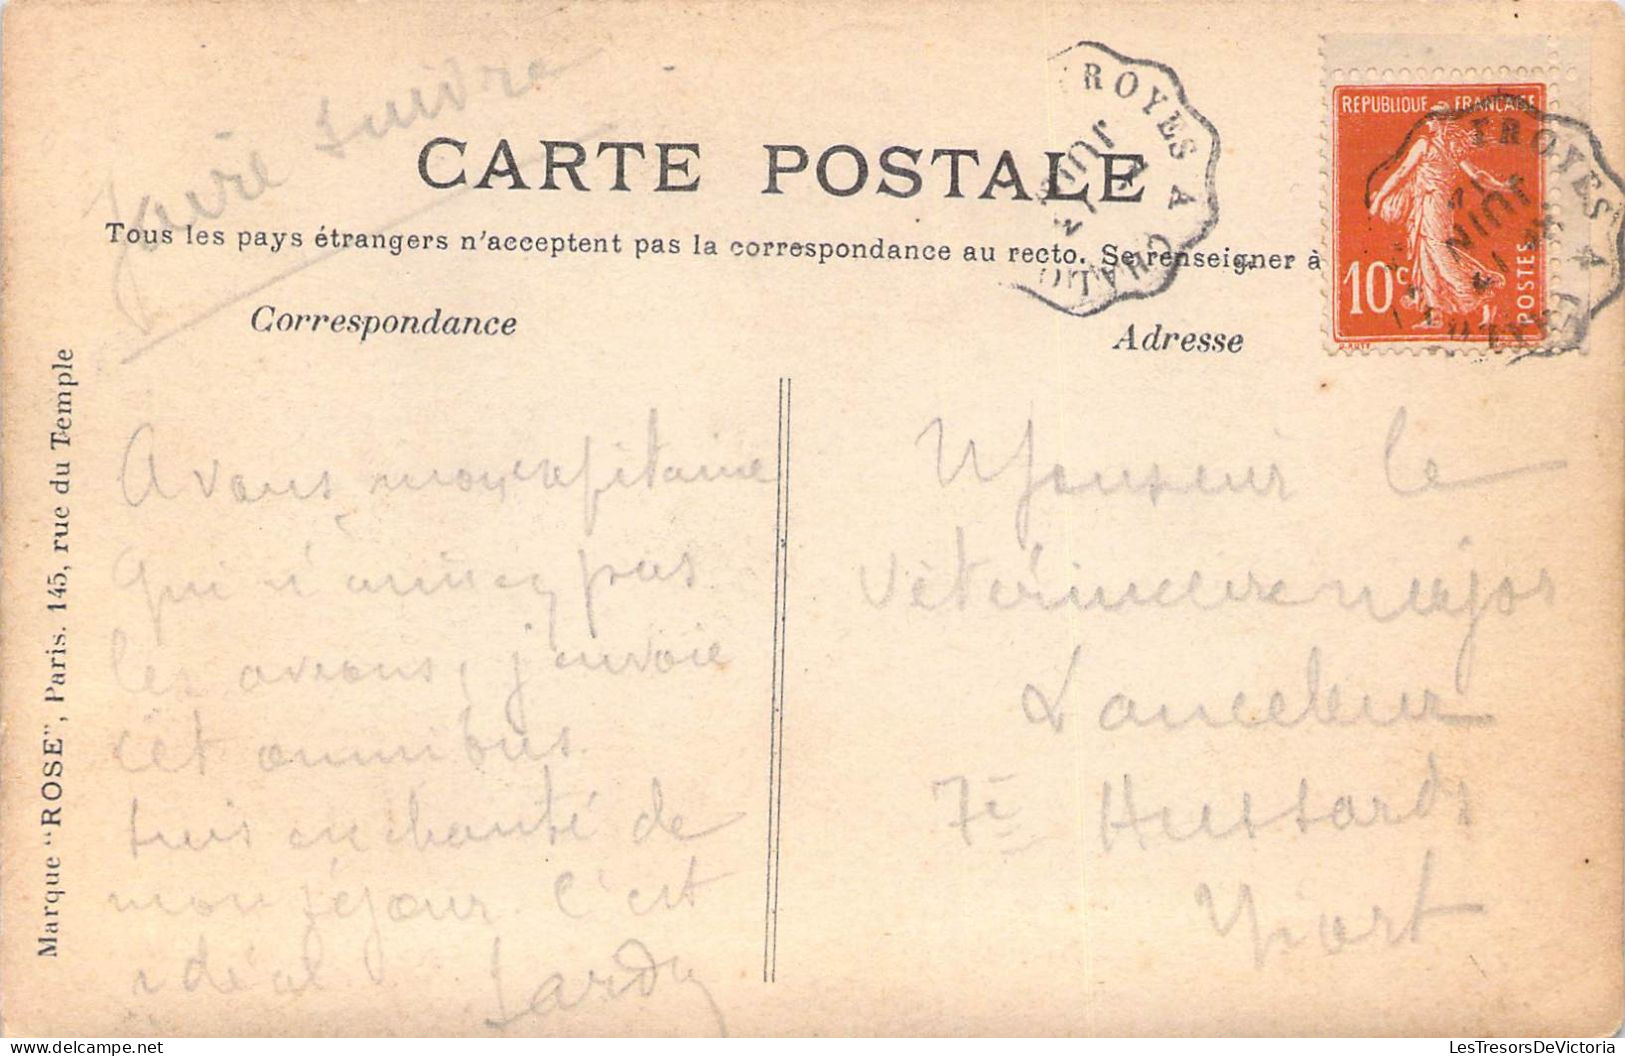 Faire suivre
CARTE POSTALE
Tous les pays étrangers n'acceptent pas la correspondance au recto. Se renseigner à
Correspondance
Adresse
RÉPUBLIQUE FRANÇAISE
10c
POSTES
TROYES A
JUIN
TROYES A
JUIN
Marque "ROSE", Paris. 145, rue du Temple
A vous mon capitaine
qui n'aimez pas
les avions, j'envoie
cet omnibus.
suis enchanté de
mon séjour. C'est
idéal
Monsieur le
Vétérinaire major
7e Hussards
Niort
LesTresorsDeVictoria.com